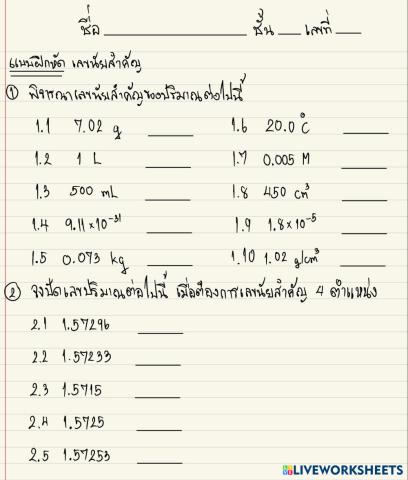 ชื่อ ชั้น เลขที่
แบบฝึกหัด เลขนัยสำคัญ
① พิจารณาเลขนัยสำคัญของปริมาณต่อไปนี้
1.1 7.02 g 1.6 20.0 °C
1.2 1 L 1.7 0.005 M
1.3 500 mL 1.8 450 cm³
1.4 9.11 × 10⁻³¹ 1.9 1.8 × 10⁻⁵
1.5 0.073 kg 1.10 1.02 g/cm³
② จงปัดเลขปริมาณต่อไปนี้ เมื่อต้องการเลขนัยสำคัญ 4 ตำแหน่ง
2.1 1.57296
2.2 1.57233
2.3 1.5715
2.4 1.5725
2.5 1.57253
LIVEWORKSHEETS